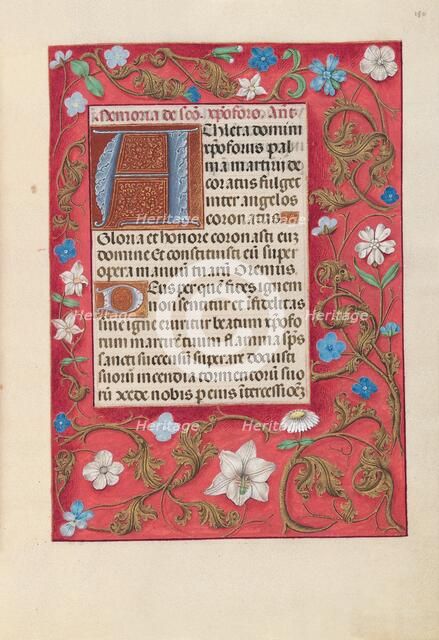 180
Memoria de sco xpoforo. Ant.
Athleta domini
xpoforus pal
ma martirii de
coratus fulget
inter angelos
coronatus.
Gloria et honore coronasti eum
domine Et constituisti eum super
opera manuum tuarum Oremus.
Deus per quem fides ignem
non sentitur et infidelitas
sine igne exuritur beatum xpofo
rum martirem tuum flamma sps
sancti succensum superare docuisti
suorum incendia tormentorum suo
rum xcede nobis per eius intercessioem
Heritage
Heritage
Heritage
Heritage
Heritage
Heritage